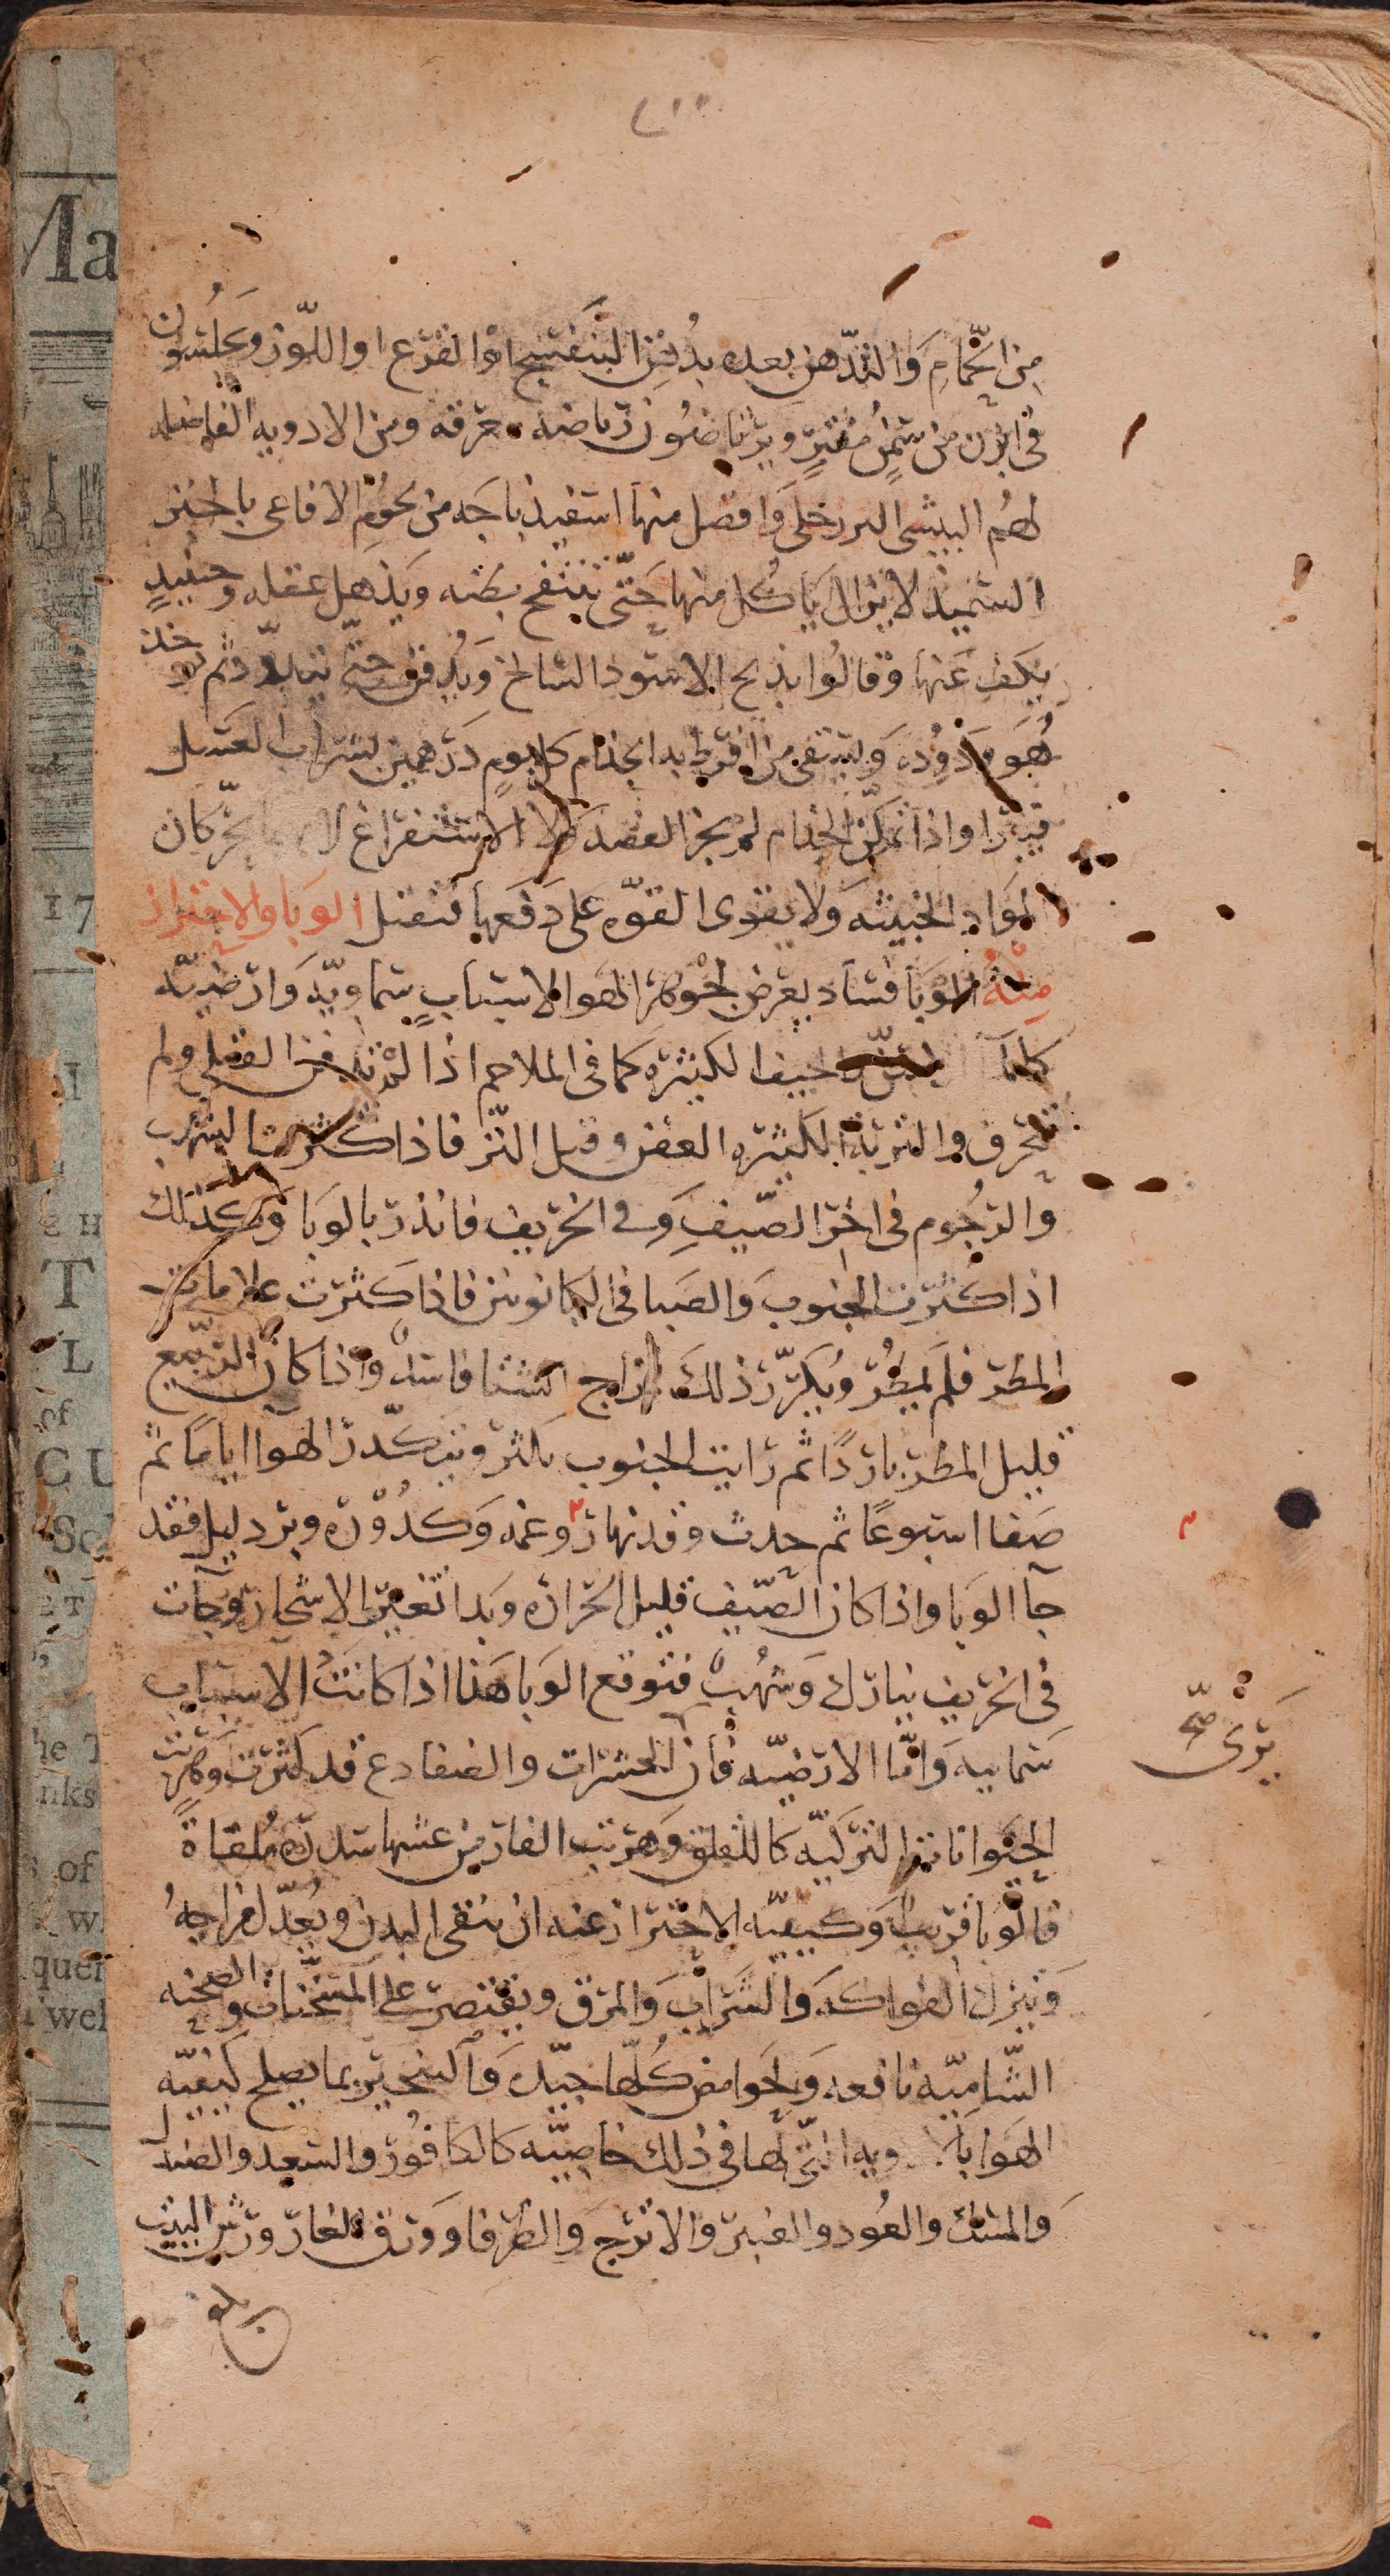 من الحمام والتدهن بعده بدهن البنفسج او القرع او اللوز ويجلسون
فى ابزن من سمن مفتر ويرتاضون رياضه معرقه ومن الادويه الفاضله
لهم البيشى البررحلى وافضل منها اسفيذباجه من لحوم الافاعى باخبز
السميذ لا يزال ياكل منها حتى ينتفخ بطنه ويذهل عقله وحينيذ
يكف عنها وقالوا يذبح الاسود السالخ ويدفن حتى يتدود ثم خذ
هو ودوده ويسقى من افرط به الجذام كل يوم درهمين بشراب العسل
فيبرا واذا تمكن الجذام لم يجز الفصد ولا الاستفراغ يحركان
المواد الخبيثه ولا يقوى القوه على دفعها فتقتل الوبا والاحتراز
منه الوبا فساد يعرض لجوهر الهوا لاسباب سماويه وارضيه
كالماء الجيف الكثيره كما فى الملاحم اذا لم تدفن القتلى ولم
تحرق والتربه الكثيره العفن وقيل النز فاذا كثرت الشهب
والرجوم فى اخر الصيف وفى الخريف فانذر بالوبا وكذلك
اذا كثرت الجنوب والصبا فى الكانونين فاذا كثرت علامات
المطر فلم يمطر وتكرر ذلك فمزاج الشتا فاسد واذا كان الربيع
قليل المطر باردا ثم رايت الجنوب يكثر ويتكدر الهوا اياما ثم
صفا اسبوعا ثم حدث وقد نهار وغمه وكدوره وبرد ليل فقد
جآ الوبا واذا كان الصيف قليل الحراره وبدا تغير الاشجار وجآت
فى الخريف نيازك وشهب فتوقع الوبا هذا اذا كانت الاسباب
سمايية واما الارضيه فان الحشرات والضفادع قد كثرت وهربت
الحيوانات الذكيه كاللقلق وهربت الفار من عشها سدره ملقاة
فالوبا قريب وكيفيه الاحتراز عنه ان ينقى البدن ويعدل مزاجه
ويترك الفواكه والشراب والمرق ويقتصر على المسخنات والصحنه
الشاميه نافعه والحوامض كلها جيده والتبخير بما يصلح كيفيه
الهوا بالادويه التى لها فى ذلك خاصيه كالكافور والسعد والصندل
والمسك والعود والعنبر والاترج والطرفا وورق الغار ورش البيت
يرى صح
بلغ